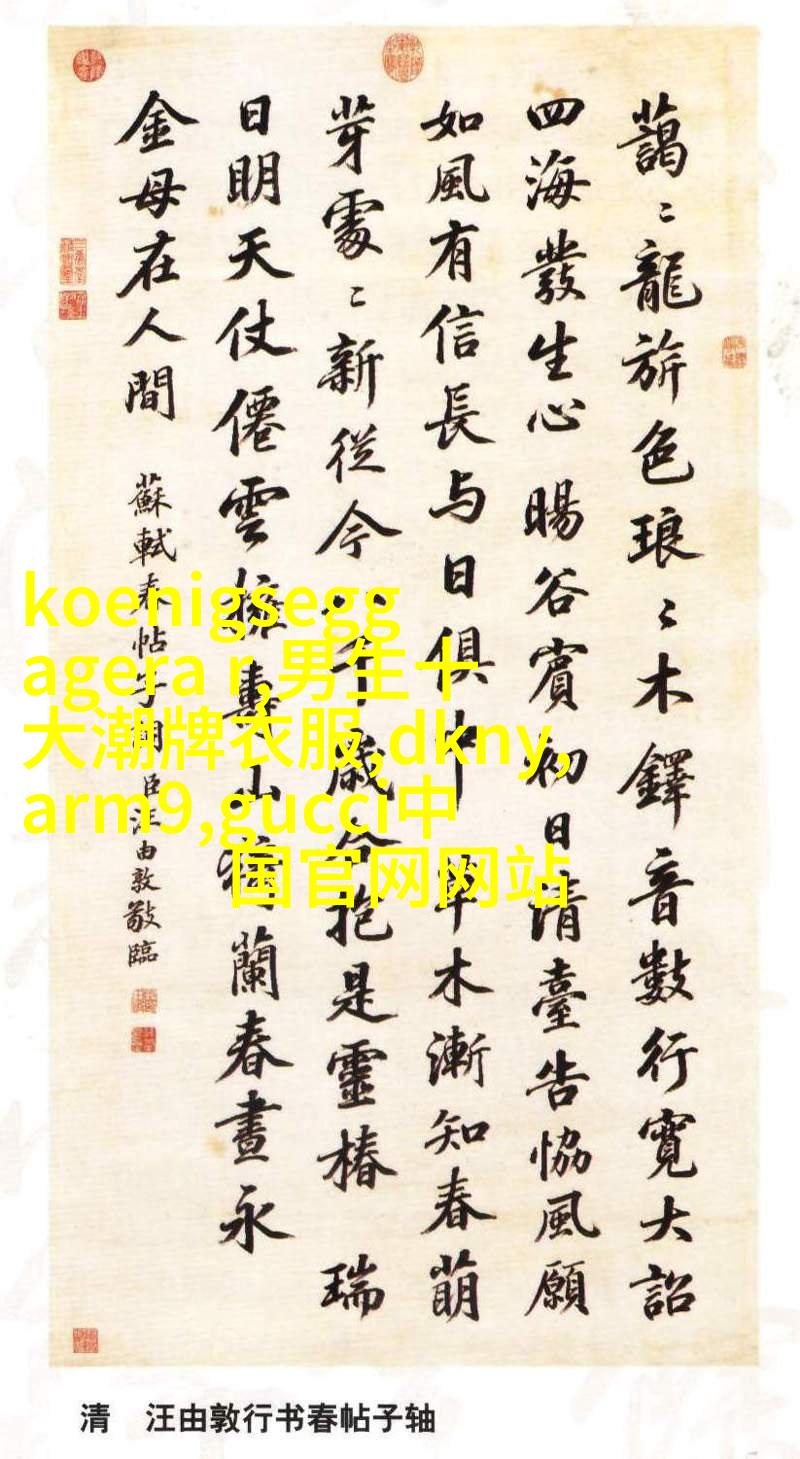 藹〻龍旂色琅〻木鐸音數行寬大詔
四海發生心 暘谷賓初日清臺告協風願
如風有信長与日俱中 草木漸知春萌
芽處〻新從今八千歲合抱是靈椿 瑞
日明天仗僊雲擁壽山猗蘭春晝永
金母在人間
蘇軾春帖子詞臣汪由敦敬臨
koenigsegg
agera r,男生十
大潮牌衣服,dkny,
arm9,gucci中
国官网网站
清 汪由敦行书春帖子轴